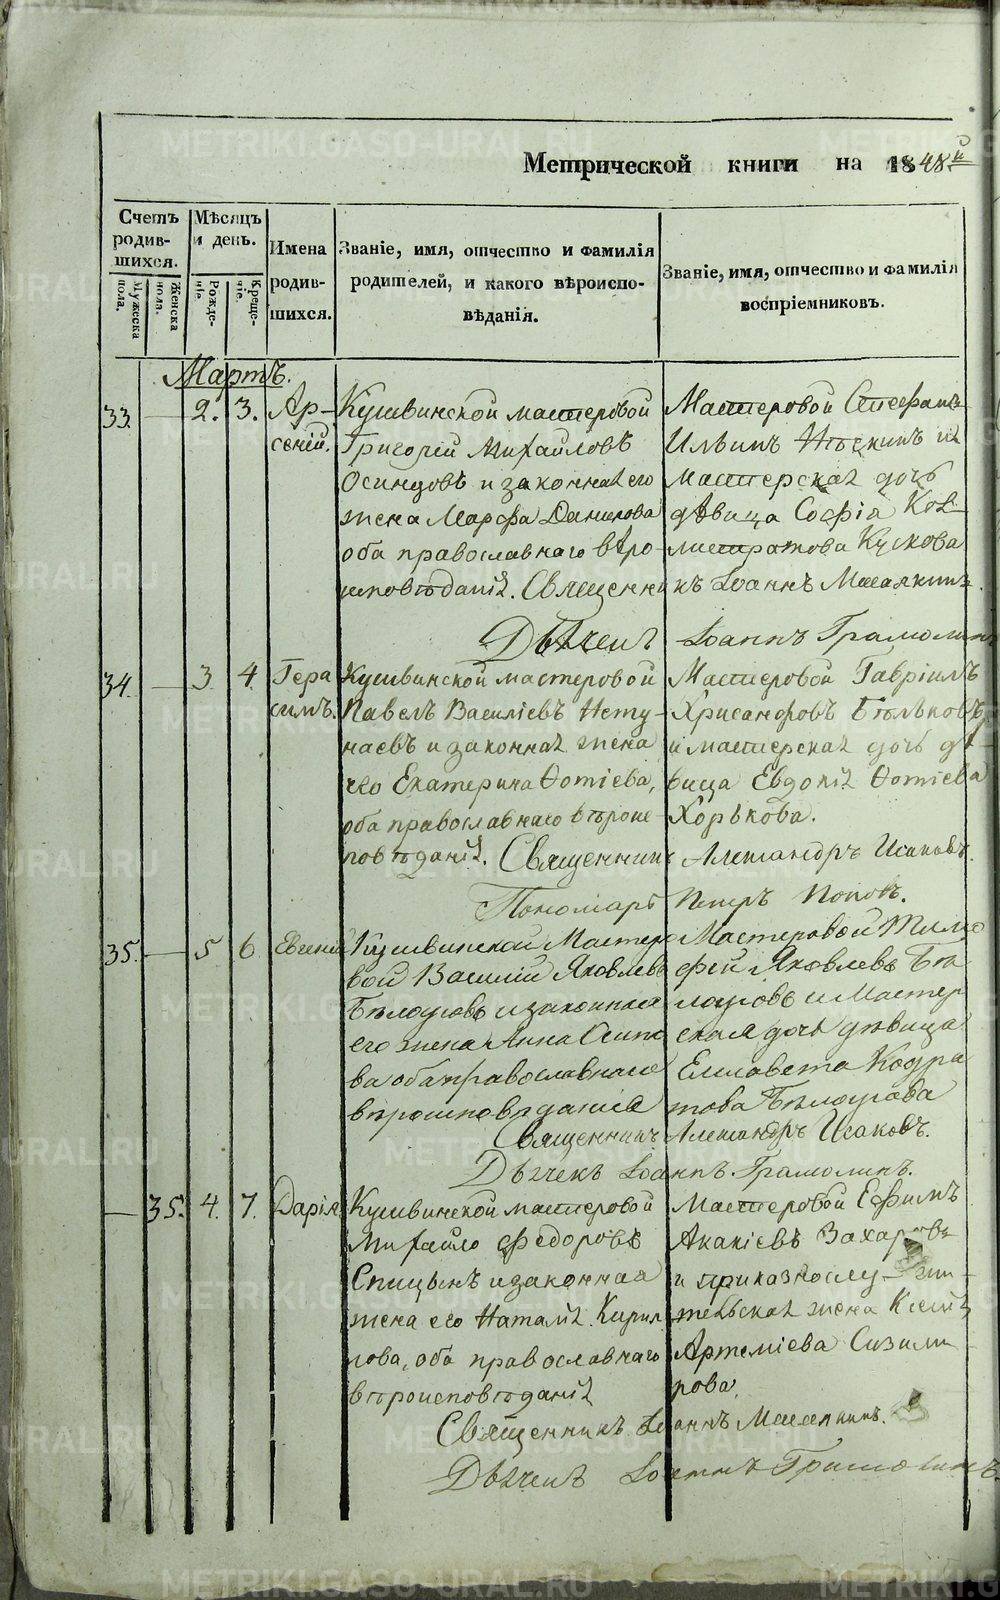 Метрической книги на 1848й
Счетъ родив- шихся.
Мужеска пола.
Женска пола.
Мѣсяцъ и день.
Рожде- ніе.
Креще- ніе.
Имена родив- шихся.
Званіе, имя, отчество и фамилія
родителей, и какого вѣроиспо-
вѣданія.
Званіе, имя, отчество и фамилія
воспріемниковъ.
Мартъ.
33. — 2. 3. Ар- сеній.
Кушвинской мастеровой
Григорій Михайловъ
Осинцовъ и законная его
жена Марфа Данилова
оба православнаго вѣро-
исповѣданія.
Мастеровой Стефанъ
Ильинъ и
мастерская дочь
дѣвица Софія Кал-
листратова Кускова
Священникъ Іоаннъ
Дьячекъ Іоаннъ Грамолинъ
34. — 3. 4. Гера симъ.
Кушвинской мастеровой
Павелъ Василіевъ Нету-
наевъ и законная жена
его Екатерина Фотіева,
оба православнаго вѣроис
повѣданія.
Мастеровой Гавріилъ
Хрисанфовъ Бѣльковъ
и мастерская дочь дѣ-
вица Евдокія Фотіева
Хорькова.
Священникъ Александръ Исаковъ.
Пономарь Петръ Поповъ.
35. — 5 6 Евгеній
Кушвинской Мастеро
вой Василій Яковлевъ
Бѣлоусовъ и законная
его жена Анна Осипо
ва оба православнаго
вѣроисповѣданія
Мастеровой Тимо
фей Яковлевъ Бѣ
лоусовъ и Мастер
ская дочь дѣвица
Елисавета Кодра
това Бѣлоусова
Священникъ Александръ Исаковъ.
Дьячекъ Іоаннъ Грамолинъ.
— 35. 4. 7. Дарія
Кушвинской мастеровой
Михайло Федоровъ
Спицынъ и законная
жена его Наталія Кирил
лова, оба православнаго
вѣроисповѣданія
Мастеровой Ефимъ
Акакіевъ Захаровъ
и
жена
Артеміева
рова.
Священникъ Іоаннъ
Дьячекъ Іоаннъ Грамолинъ.
METRIKI.GASO-URAL.RU